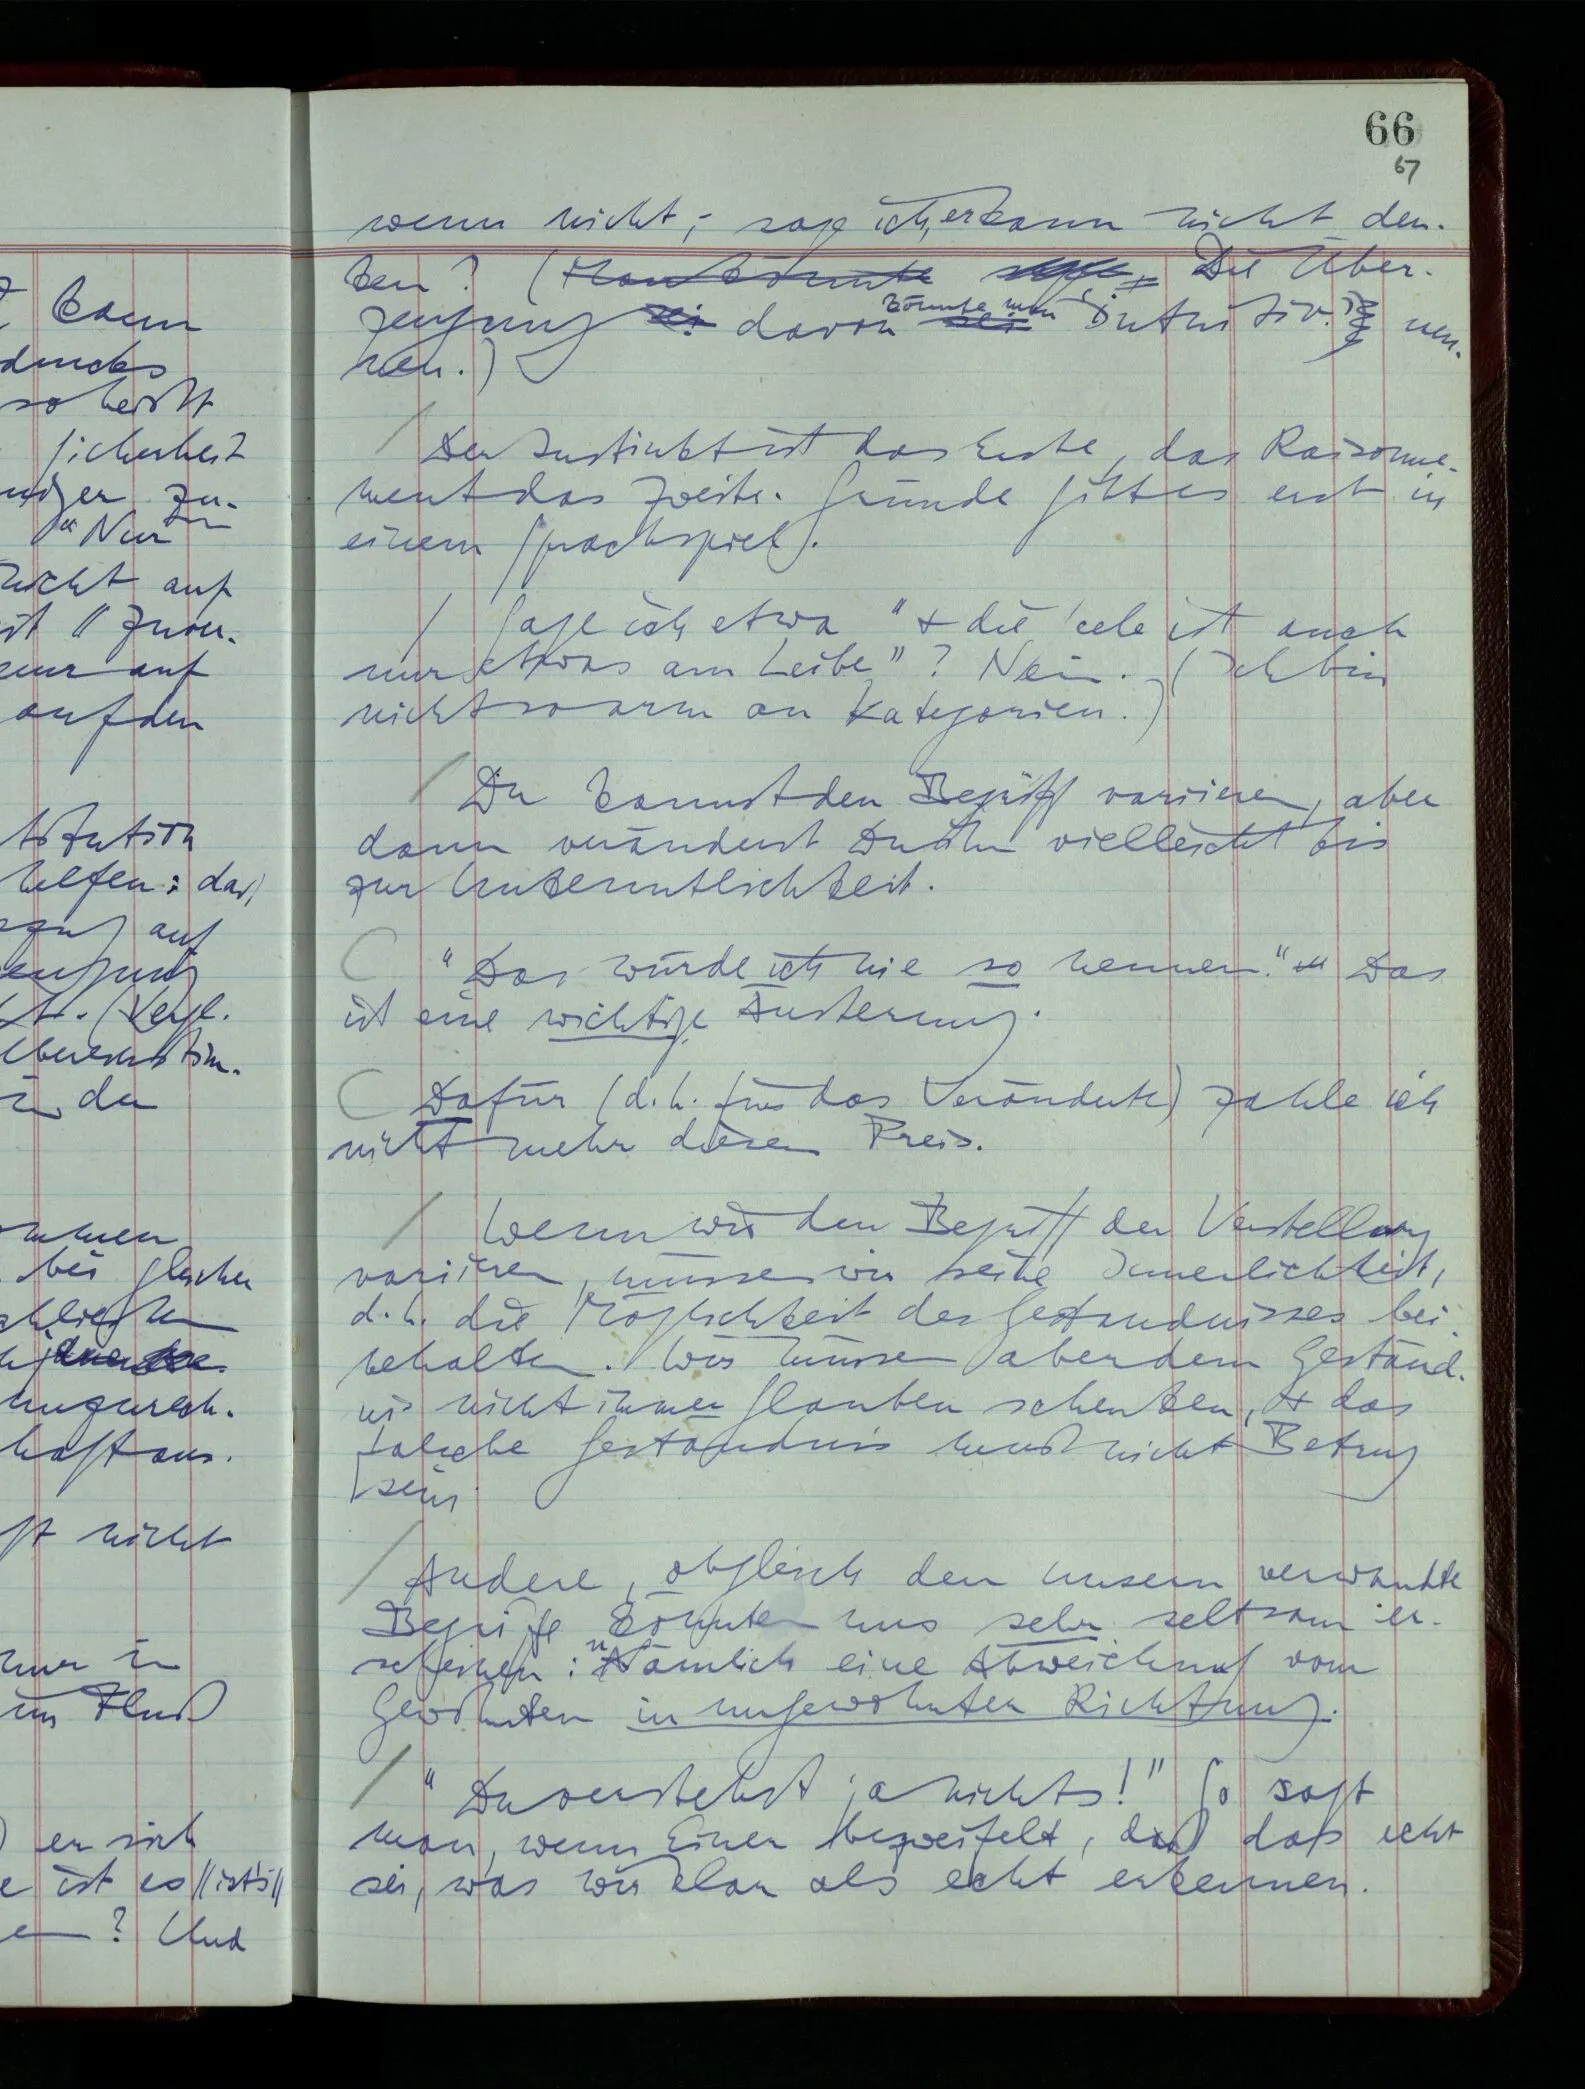 66
67
wenn nicht, – sage ich, er kann nicht den-
ken? (Man könnte sagen, Die Über-
zeugung sei davon sei könnte man 'intuitiv' nen-
nen.)
/ Der Instinkt ist das Erste, das Raisonne-
ment das Zweite. Gründe gibt es erst in
einem Sprachspiel.
/ Sage ich etwa "& die Seele ist auch
nur etwas am Leibe"? Nein. (Ich bin
nicht so arm an Kategorien.)
/ Du kannst den Begriff variieren, aber
dann veränderst Du ihn vielleicht bis
zur Unkenntlichkeit.
"Das würde ich nie so nennen." Das
ist eine wichtige Äusserung.
Dafür (d.h. für das Veränderte) zahle ich
nicht mehr diesen Preis.
/ Wenn wir den Begriff der Verstellung
variieren, müssen wir seine Innerlichkeit,
d.h. die Möglichkeit des Geständnisses bei-
behalten. Wir müssen aber dem Geständ-
nis nicht immer Glauben schenken, & das
falsche Geständnis muß nicht Betrug
sein
/ Andere, obgleich den unsern verwandte
Begriffe könnten uns sehr seltsam er-
scheinen: nämlich eine Abweichung vom
Gewohnten in ungewohnter Richtung.
/ "Du verstehst ja nichts!" So sagt
man, wenn Einer bezweifelt, daß das echt
sei, was wir klar als echt erkennen.
kann
drucks
so heißt
Sicherheit
zu-
"Nur
nicht auf
ist // Zuver-
nur auf
auf den
helfen: das,
auf
(Vergl.
Übereinstim-
in der
bei gleichen
ungerech-
haft aus.
nicht
nur in
im Fluß
er sich
ist es // ist's //
? Und